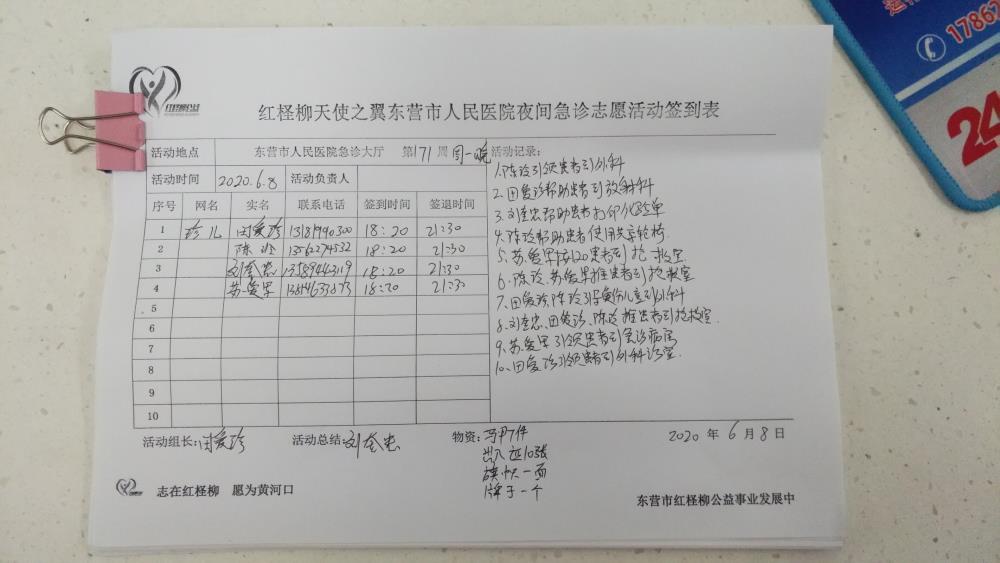 红柽柳公益
红柽柳天使之翼东营市人民医院夜间急诊志愿活动签到表
活动地点 东营市人民医院急诊大厅 第171周 周一晚 活动记录:
活动时间 2020.6.8 活动负责人
序号 网名 实名 联系电话 签到时间 签退时间
1 珍儿 田爱珍 13181990300 18:20 21:30
2 陈玲 13562274532 18:20 21:30
3 刘奎忠 13589443119 18:20 21:30
4 苏爱军 18:20 21:30
5
6
7
8
9
10
1.陈玲引领患者到外科
2.田爱珍帮助患者到放射科
3.刘奎忠帮助患者打印化验单
4.陈玲帮助患者使用共享轮椅
5.苏爱军接120患者到抢救室.
6.陈玲、苏爱军推患者到抢救室
7.田爱珍,陈玲引导受伤儿童到外科
8.刘奎忠、田爱珍、陈玲推患者到抢救室.
9.苏爱军引领患者到急诊病房
10.田爱珍引领患者到外科诊室.
活动组长:田爱珍 活动总结:刘奎忠 物资:马甲7件 2020 年 6 月 8 日
出入证10张
旗帜一面
牌子一个
志在红柽柳 愿为黄河口
东营市红柽柳公益事业发展中
17867
24